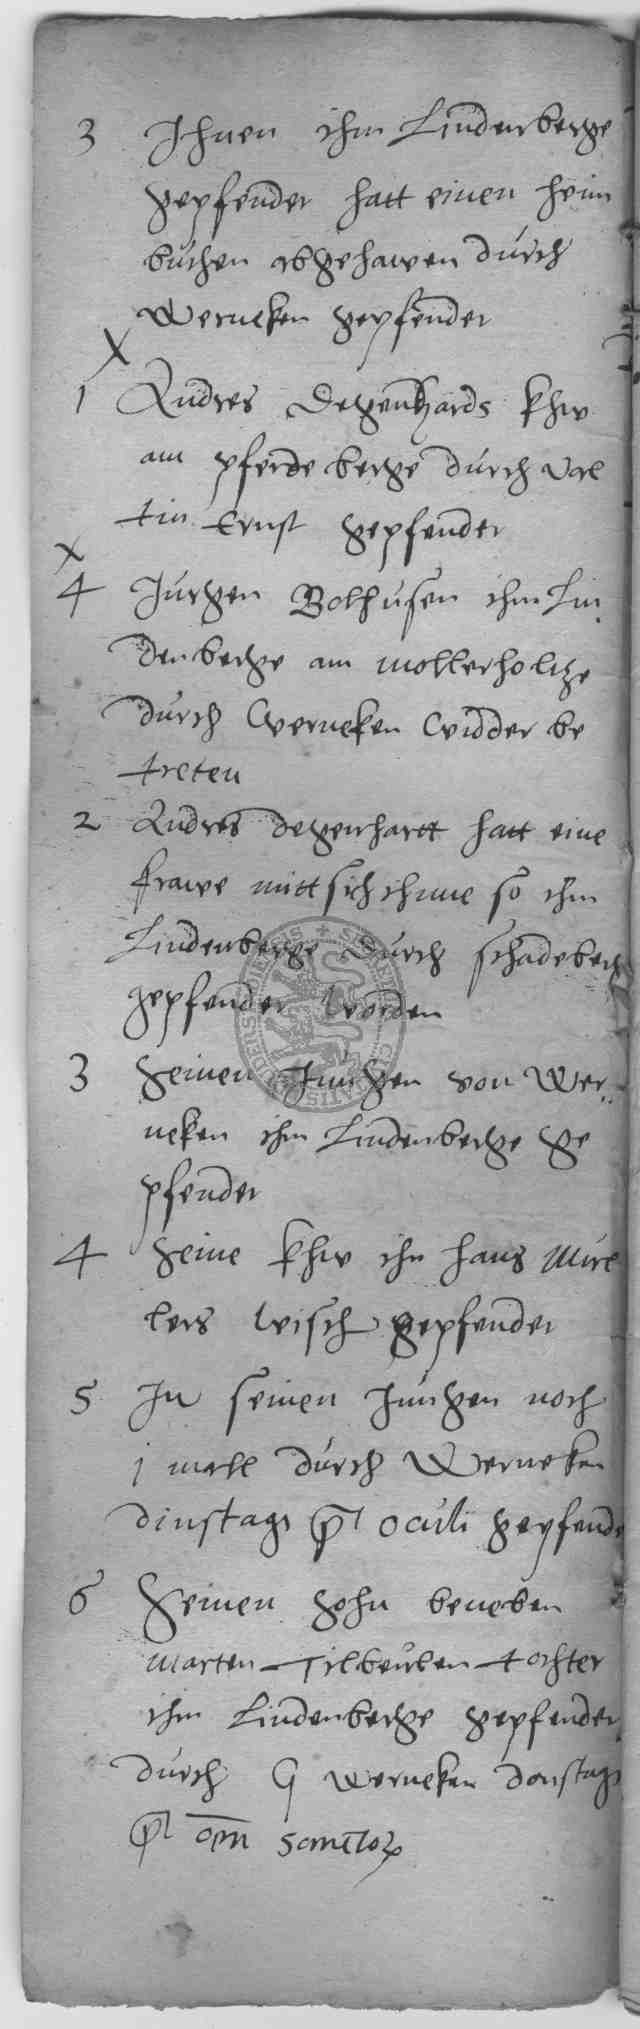 3 Ihnen ihm Lindenberge
gepfender hatt einen heim
buchen abgehawen durch
Werneken gepfender
X
1 Andres Degenhards khw
am pferde berge durch Val
tin Ernst gepfender
x
4 Jurgen Bolhusen ihm Lin
denberge am mollerholtze
durch Werneken widder be
treten
2 Andres degenhartt hatt eine
frawe mitt sich ihme so ihm
Lindenberge durch schadeberg
gepfender worden
3 Seinen Jungen von Wer
neken ihm Lindenberge ge
pfender
4 Seine khw ihn hans Mül
lers wisch gepfender
5 In seinen Jungen noch
j mall durch Werneken
dinstags p oculi gepfende
6 Seinen sohn beneben
Marten Tilbeulen tochter
ihm Lindenberge gepfender
durch G Werneken donstags
p om sanctor